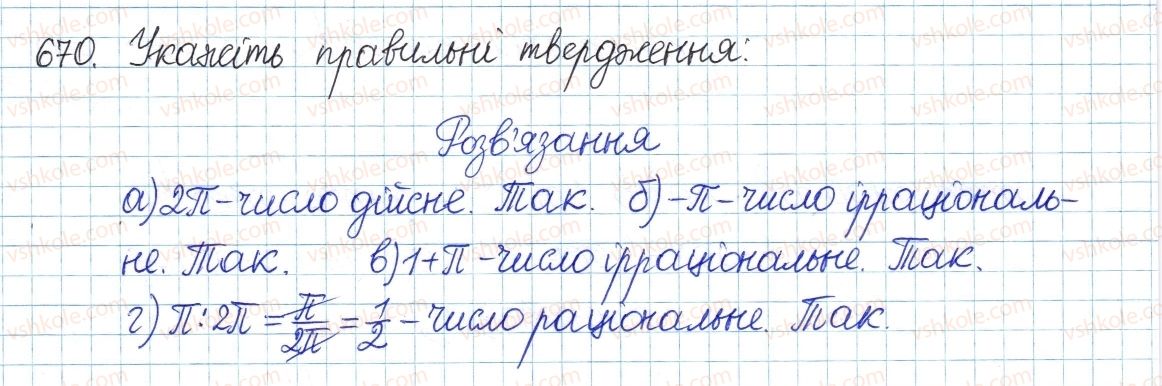 670. Укажіть правильні твердження:
Розв'язання
а) 2π – число дійсне. Так. б) –π – число ірраціональ–
не. Так. в) 1+π – число ірраціональне. Так.
г) π : 2π = π/2π = 1/2 – число раціональне. Так.